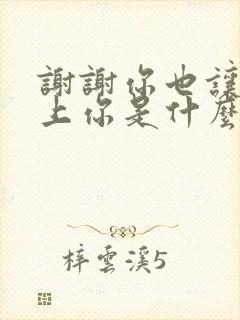 謝謝你也讓
上你是什麼
梓雲溪5